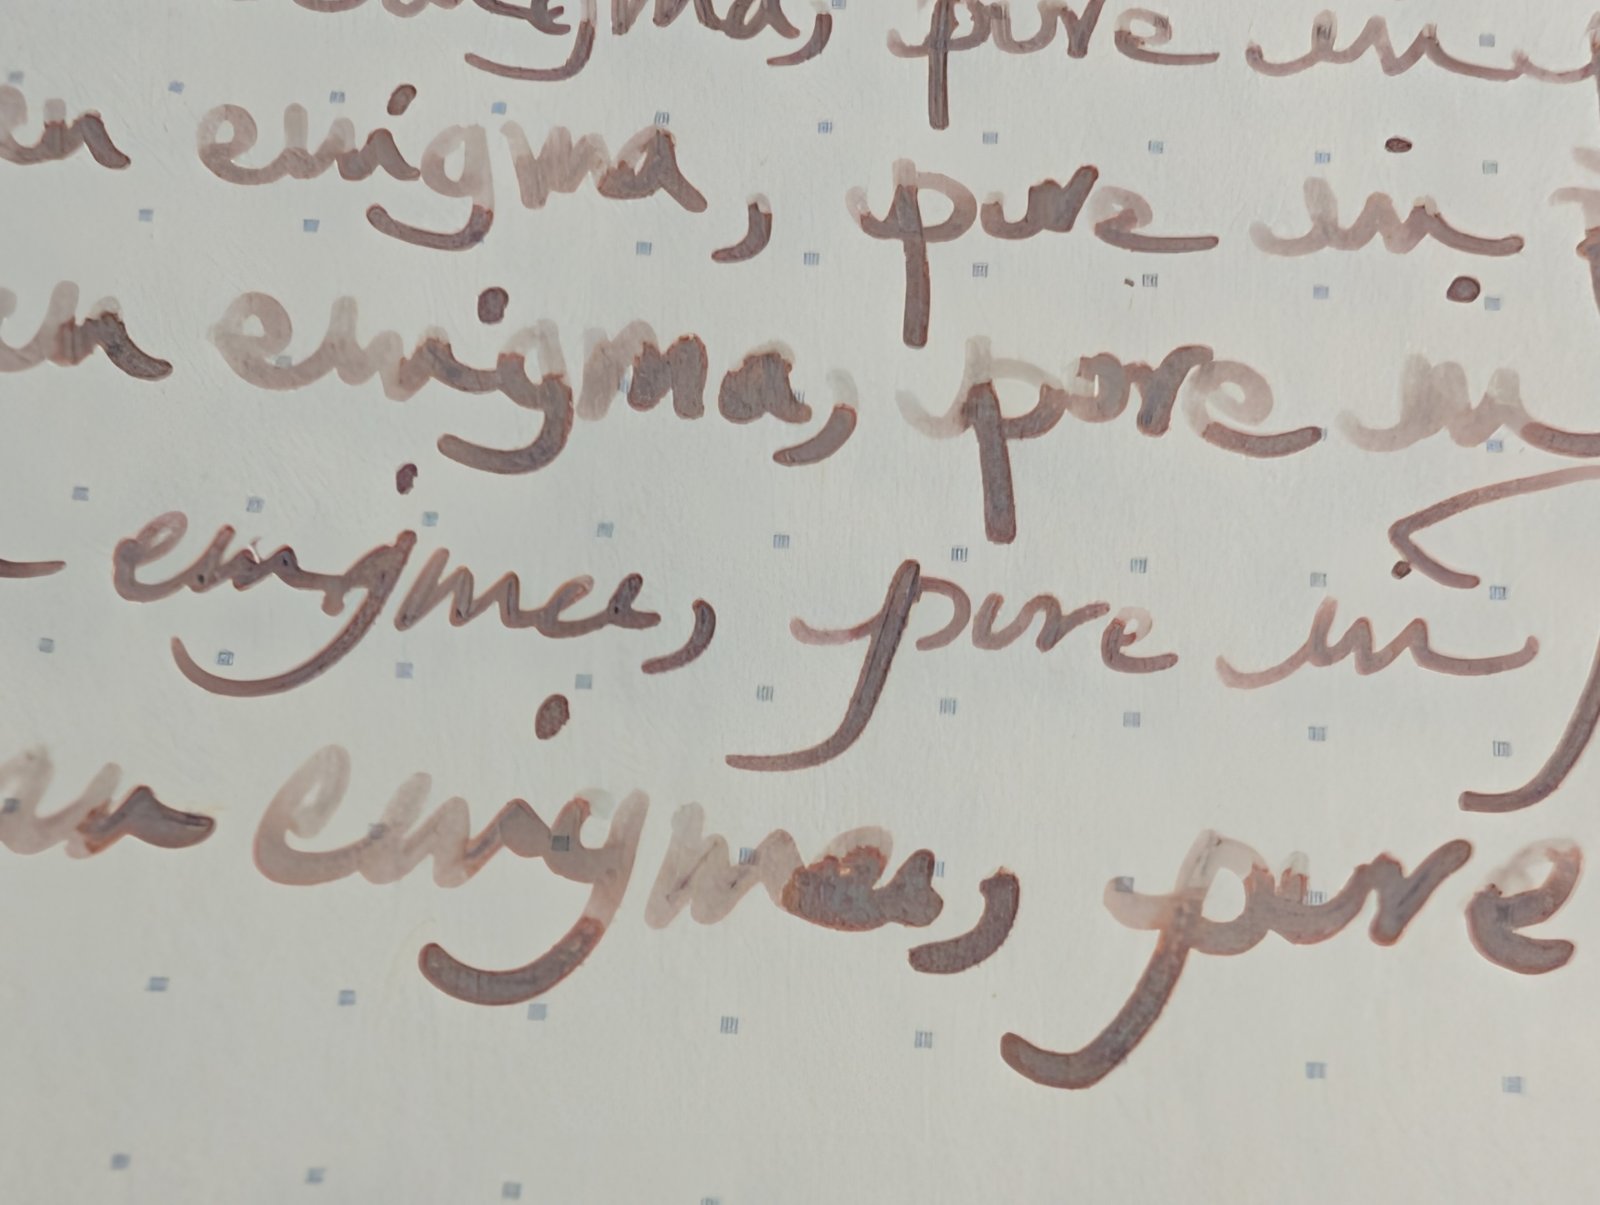 enigma, pure in
en enigma, pure in
en enigma, pure in
enigma, pure in
an enigma, pure